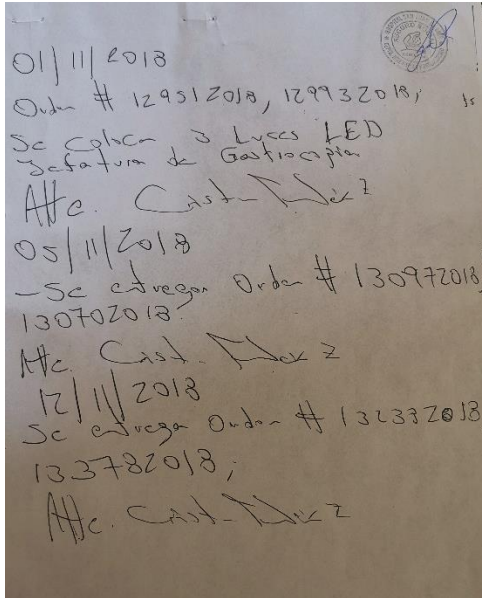 01/11/2018
Orden # 129512018, 129932018,
Se colocan 3 Luces LED
Jefatura de Gastroscopia
Atte.
05/11/2018
- Se entregan Orden # 130972018,
130702018.
Atte.
12/11/2018
Se entregan Orden # 132332018
133782018,
Atte.